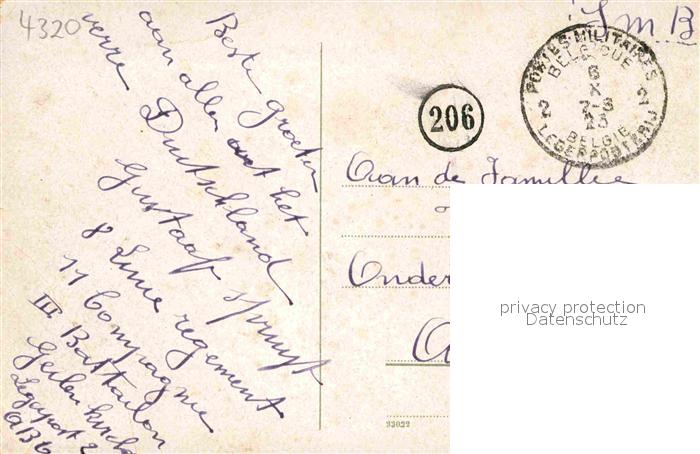 4320
Beste groeten
aan allen uit het
verre Duitschland
Gustaaf Spruyt
8 Linie regement
11 Compagnie
III Battailon
Geilenkirchen
Legerpost 2
S.M.B
POSTES MILITAIRES
BELGIQUE
2 2
6
X
7-8
23
BELGIE
LEGERPOSTERIJ
206
Aan de Famillie
Onder
privacy protection
Datenschutz
93022